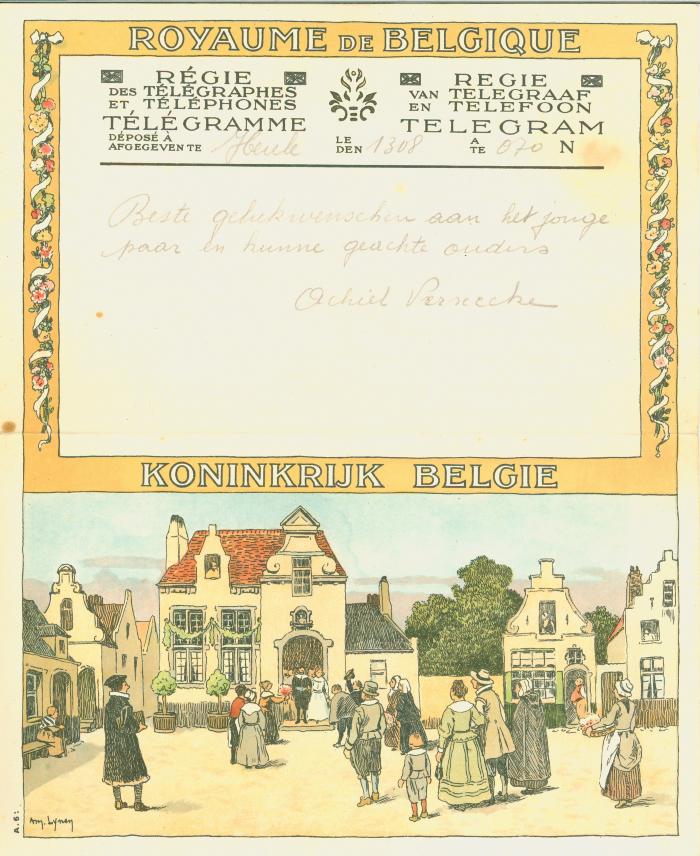 ROYAUME DE BELGIQUE
RÉGIE
DES TÉLÉGRAPHES
ET TÉLÉPHONES
TÉLÉGRAMME
REGIE
VAN TELEGRAAF
EN TELEFOON
TELEGRAM
DÉPOSÉ À
AFGEGEVEN TE Heule LE
DEN 1308 A
TE 070 N
Beste gelukwenschen aan het jonge
paar en hunne geachte ouders
Achiel Versecke
KONINKRIJK BELGIE
A.6:
Am. Lynen